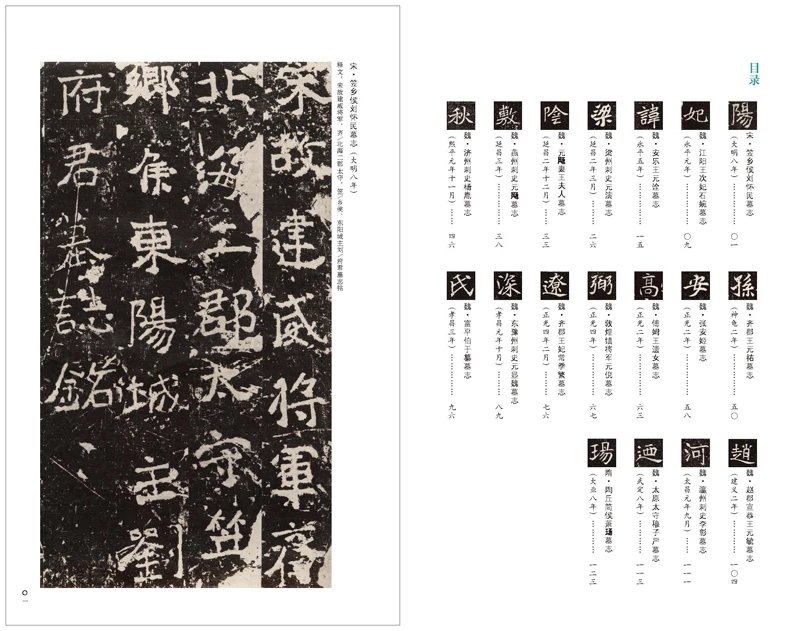 目录
陽
宋·笠乡侯刘怀民墓志
(大明八年)……〇一
妃
魏·江阳王次妃石婉墓志
(永平元年)……〇九
諱
魏·安乐王元诠墓志
(永平五年)……一五
梁
魏·梁州刺史元演墓志
(延昌二年三月)……二六
陰
魏·元飏妻王夫人墓志
(延昌二年十二月)……三三
敷
魏·燕州刺史元飏墓志
(延昌三年)……三八
秋
魏·济州刺史杨胤墓志
(熙平元年十一月)……四六
孫
魏·齐郡王元祐墓志
(神龟二年)……五〇
安
魏·张安姬墓志
(正光二年)……五八
高
魏·傅姆王遗女墓志
(正光二年)……六三
弼
魏·敦煌镇将军元倪墓志
(正光四年)……六七
遼
魏·齐郡王妃常季繁墓志
(正光四年二月)……七六
深
魏·东豫州刺史元显魏墓志
(孝昌元年十月)……八九
氏
魏·富平伯于纂墓志
(孝昌三年)……九六
趙
魏·赵郡宣恭王元毓墓志
(建义二年)……一〇四
河
魏·瀛州刺史李彰墓志
(太昌元年九月)……一一一
迺
魏·太原太守穆子严墓志
(武定八年)……一一三
瑒
隋·陶丘简侯萧瑒墓志
(大业八年)……一二三
宋·笠乡侯刘怀民墓志(大明八年)
释文:宋故建威将军、齐/北海二郡太守、笠/乡侯、东阳城主刘/府君墓志铭
宋故建威将軍齊
北海二郡太守笠
鄉侯東陽城主劉
府君墓誌銘
〇一